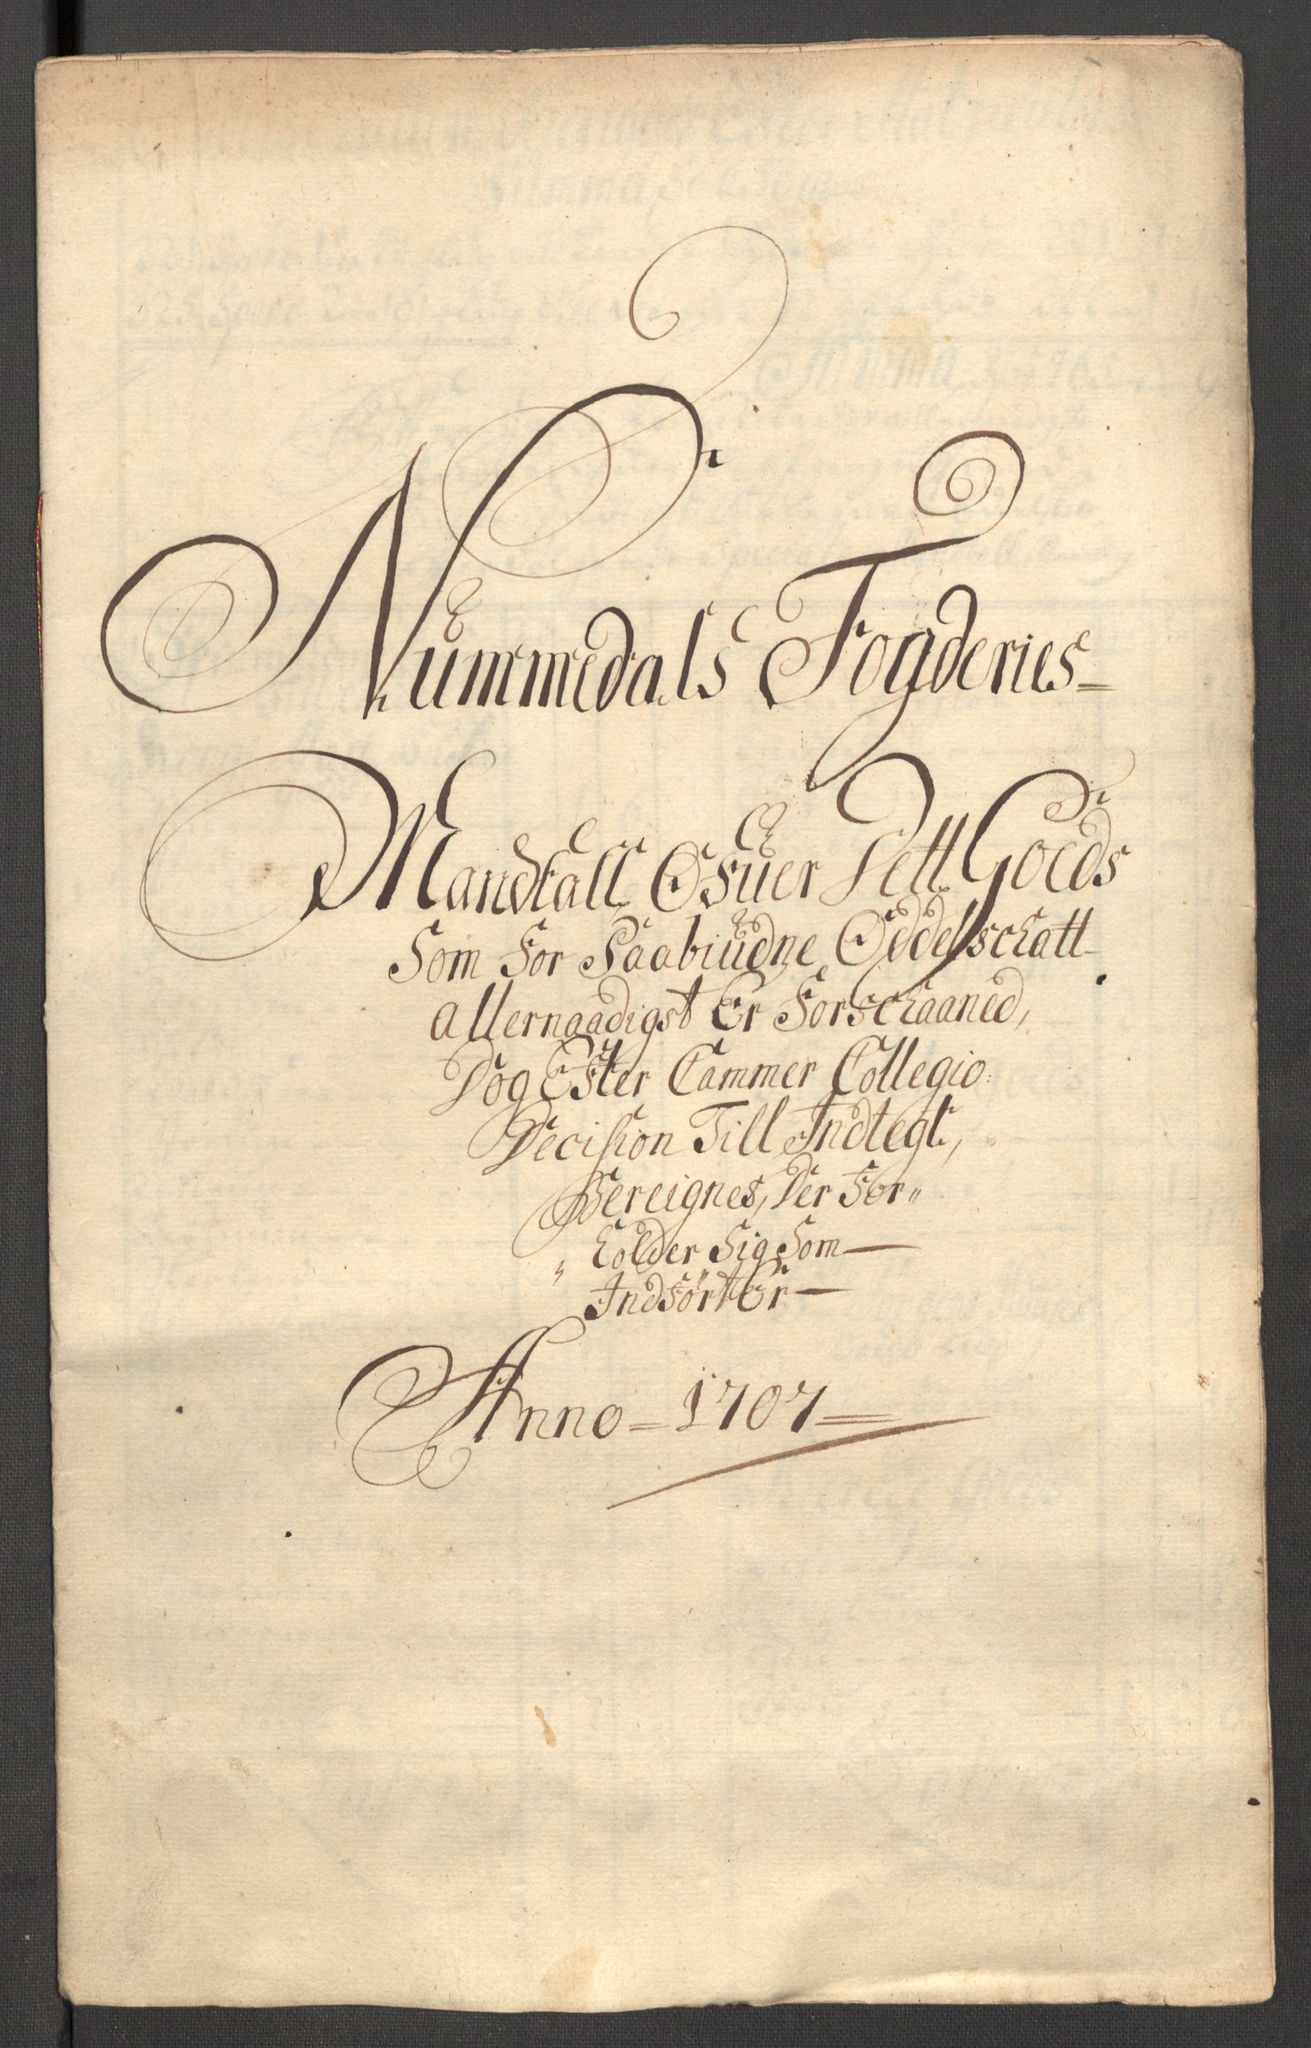 Nummedals Fogderies
Mandtall Ofuer Dett Goeds
Som for Paabiudne Oddelschatt
allernaadigst Er Forschaaned,
Dog Efter Cammer Collegio
Decision Till Indtegt,
Bereignes, Der For„
„holder Sig Som
Indført Er
Anno 1707